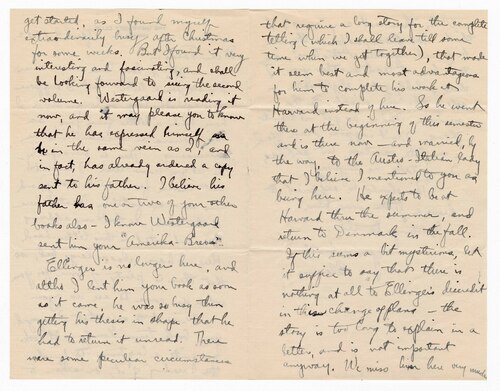 get started, as I found myself
extraordinarily busy after Christmas
for some weeks. But I found it very
interesting and fascinating, and shall
be looking forward to seeing the second
volume. Westergaard is reading it
now, and it may please you to know
that he has expressed himself
in the same vein as I, and
in fact, has already ordered a copy
sent to his father. I believe his
father has one or two of your other
books also - I know Westergaard
sent him your "Amerika-Breve"
Ellinger is no longer here, and
altho I lent him your book as soon
as it came, he was so busy then
getting his thesis in shape that he
had to return it unread. There
were some peculiar circumstances
that require a long story for the complete
telling (which I shall leave till some
time when we get together), that made
it seem best and most advantageous
for him to complete his work at
Harvard instead of here. So he went
there at the beginning of this semester
and is there now - and married, by
the way, to the Austro-Italian lady
that I believe I mentioned to you as
being here. He expects to be at
Harvard thru the summer, and
return to Denmark in the fall.
If this seems a bit mysterious, let
it suffice to say that there is
nothing at all to Ellinger's discredit
in this change of plans - the
story is too long to explain in a
letter, and is not important
anyway. We miss him here very much